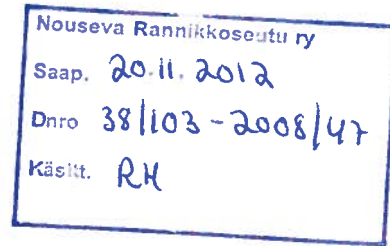 Nouseva Rannikkoseutu ry
Saap. 20.11.2012
Dnro 38/103-2008/47
Käsitt. RH